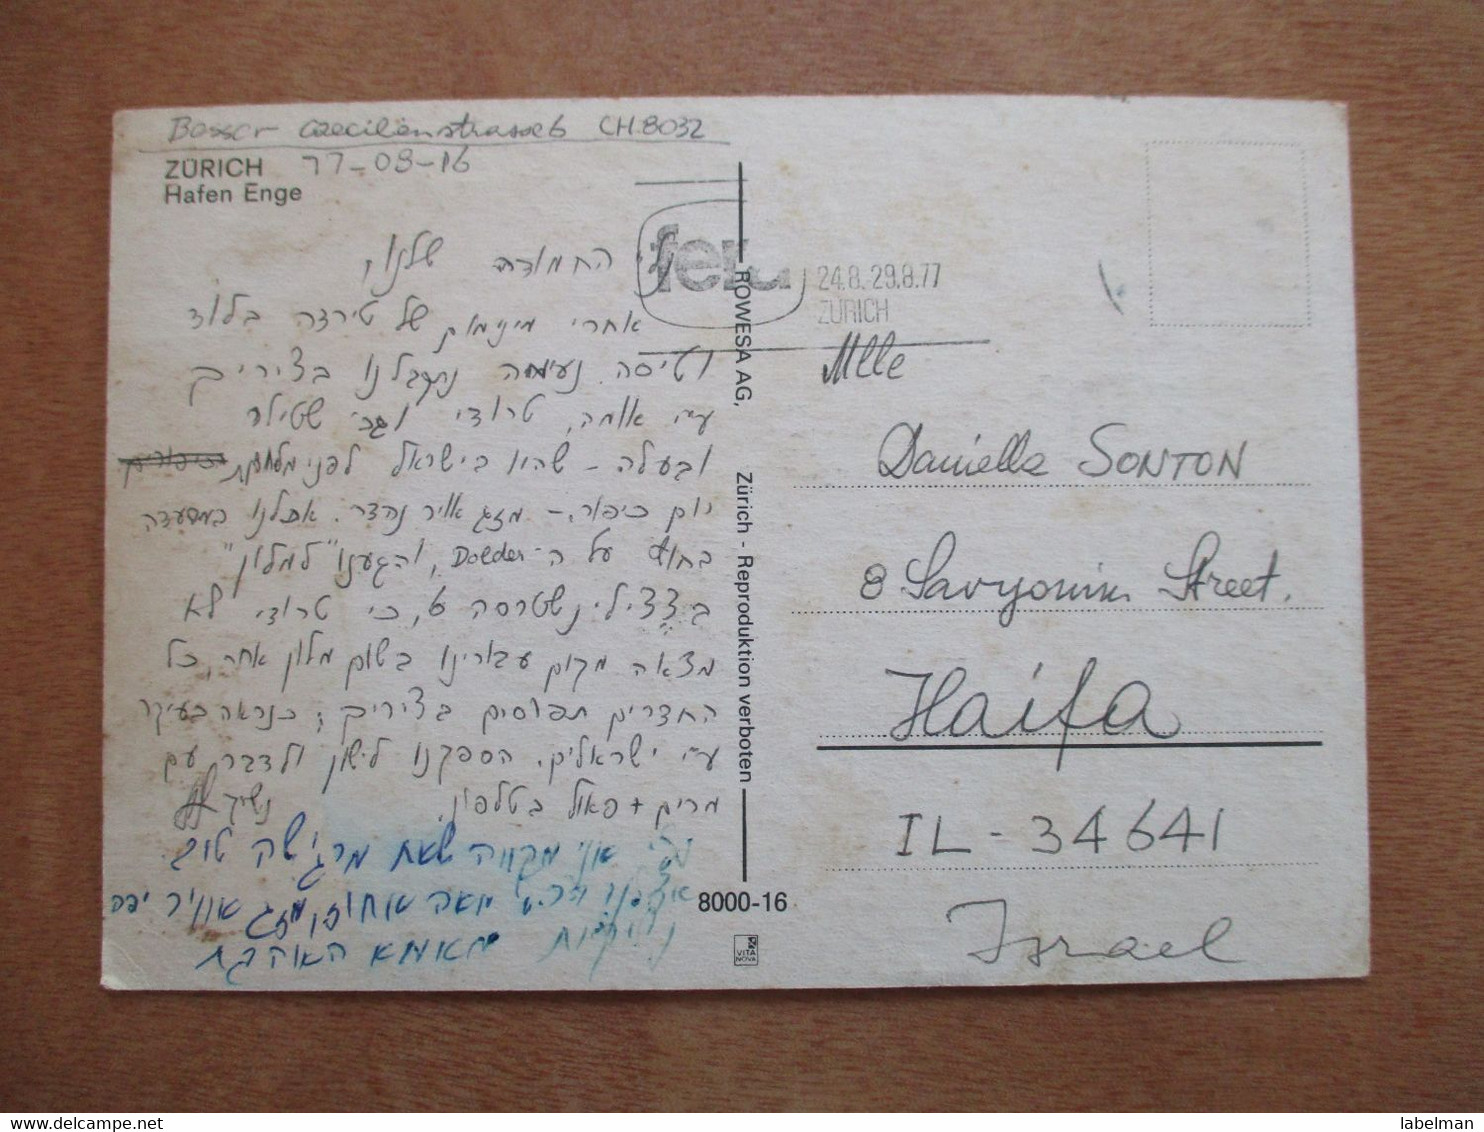 Besser Caecilienstrasse 6 CH.8032
ZÜRICH 77-08-16
Hafen Enge
החמודה שלנו,
אחרי מינימום של טירדה בלוד
וטיסה נעימה נתקבלנו בצירייך
ע״י אומה, טרודי וגב׳ שטילר
ובעלה - שהיו בישראל לפני מלחמת
יום כיפור. - מזג אויר נהדר. אכלנו במסעדה
בחוץ על ה- Dolder, והגענו "למלון"
בצצילינשטרסה 6, כי טרודי לא
מצאה מקום עבורינו בשום מלון אחר, כל
החדרים תפוסים בצירייך; כנראה בעיקר
ע״י ישראלים. הספקנו לישון ולדבר עם
מרים + פאול בטלפון. נשיק
אני מקווה שאת מרגישה טוב
אצלנו מאה אחוז, מזג אוויר יפה
נשיקות מאמא האוהבת
feru
24.8.-29.8.77
ZÜRICH
ROWESA AG, Zürich - Reproduktion verboten
8000-16
VITA NOVA
Mlle
Daniella SONTON
8 Savyonim Street.
Haifa
IL - 34641
Israel
labelman